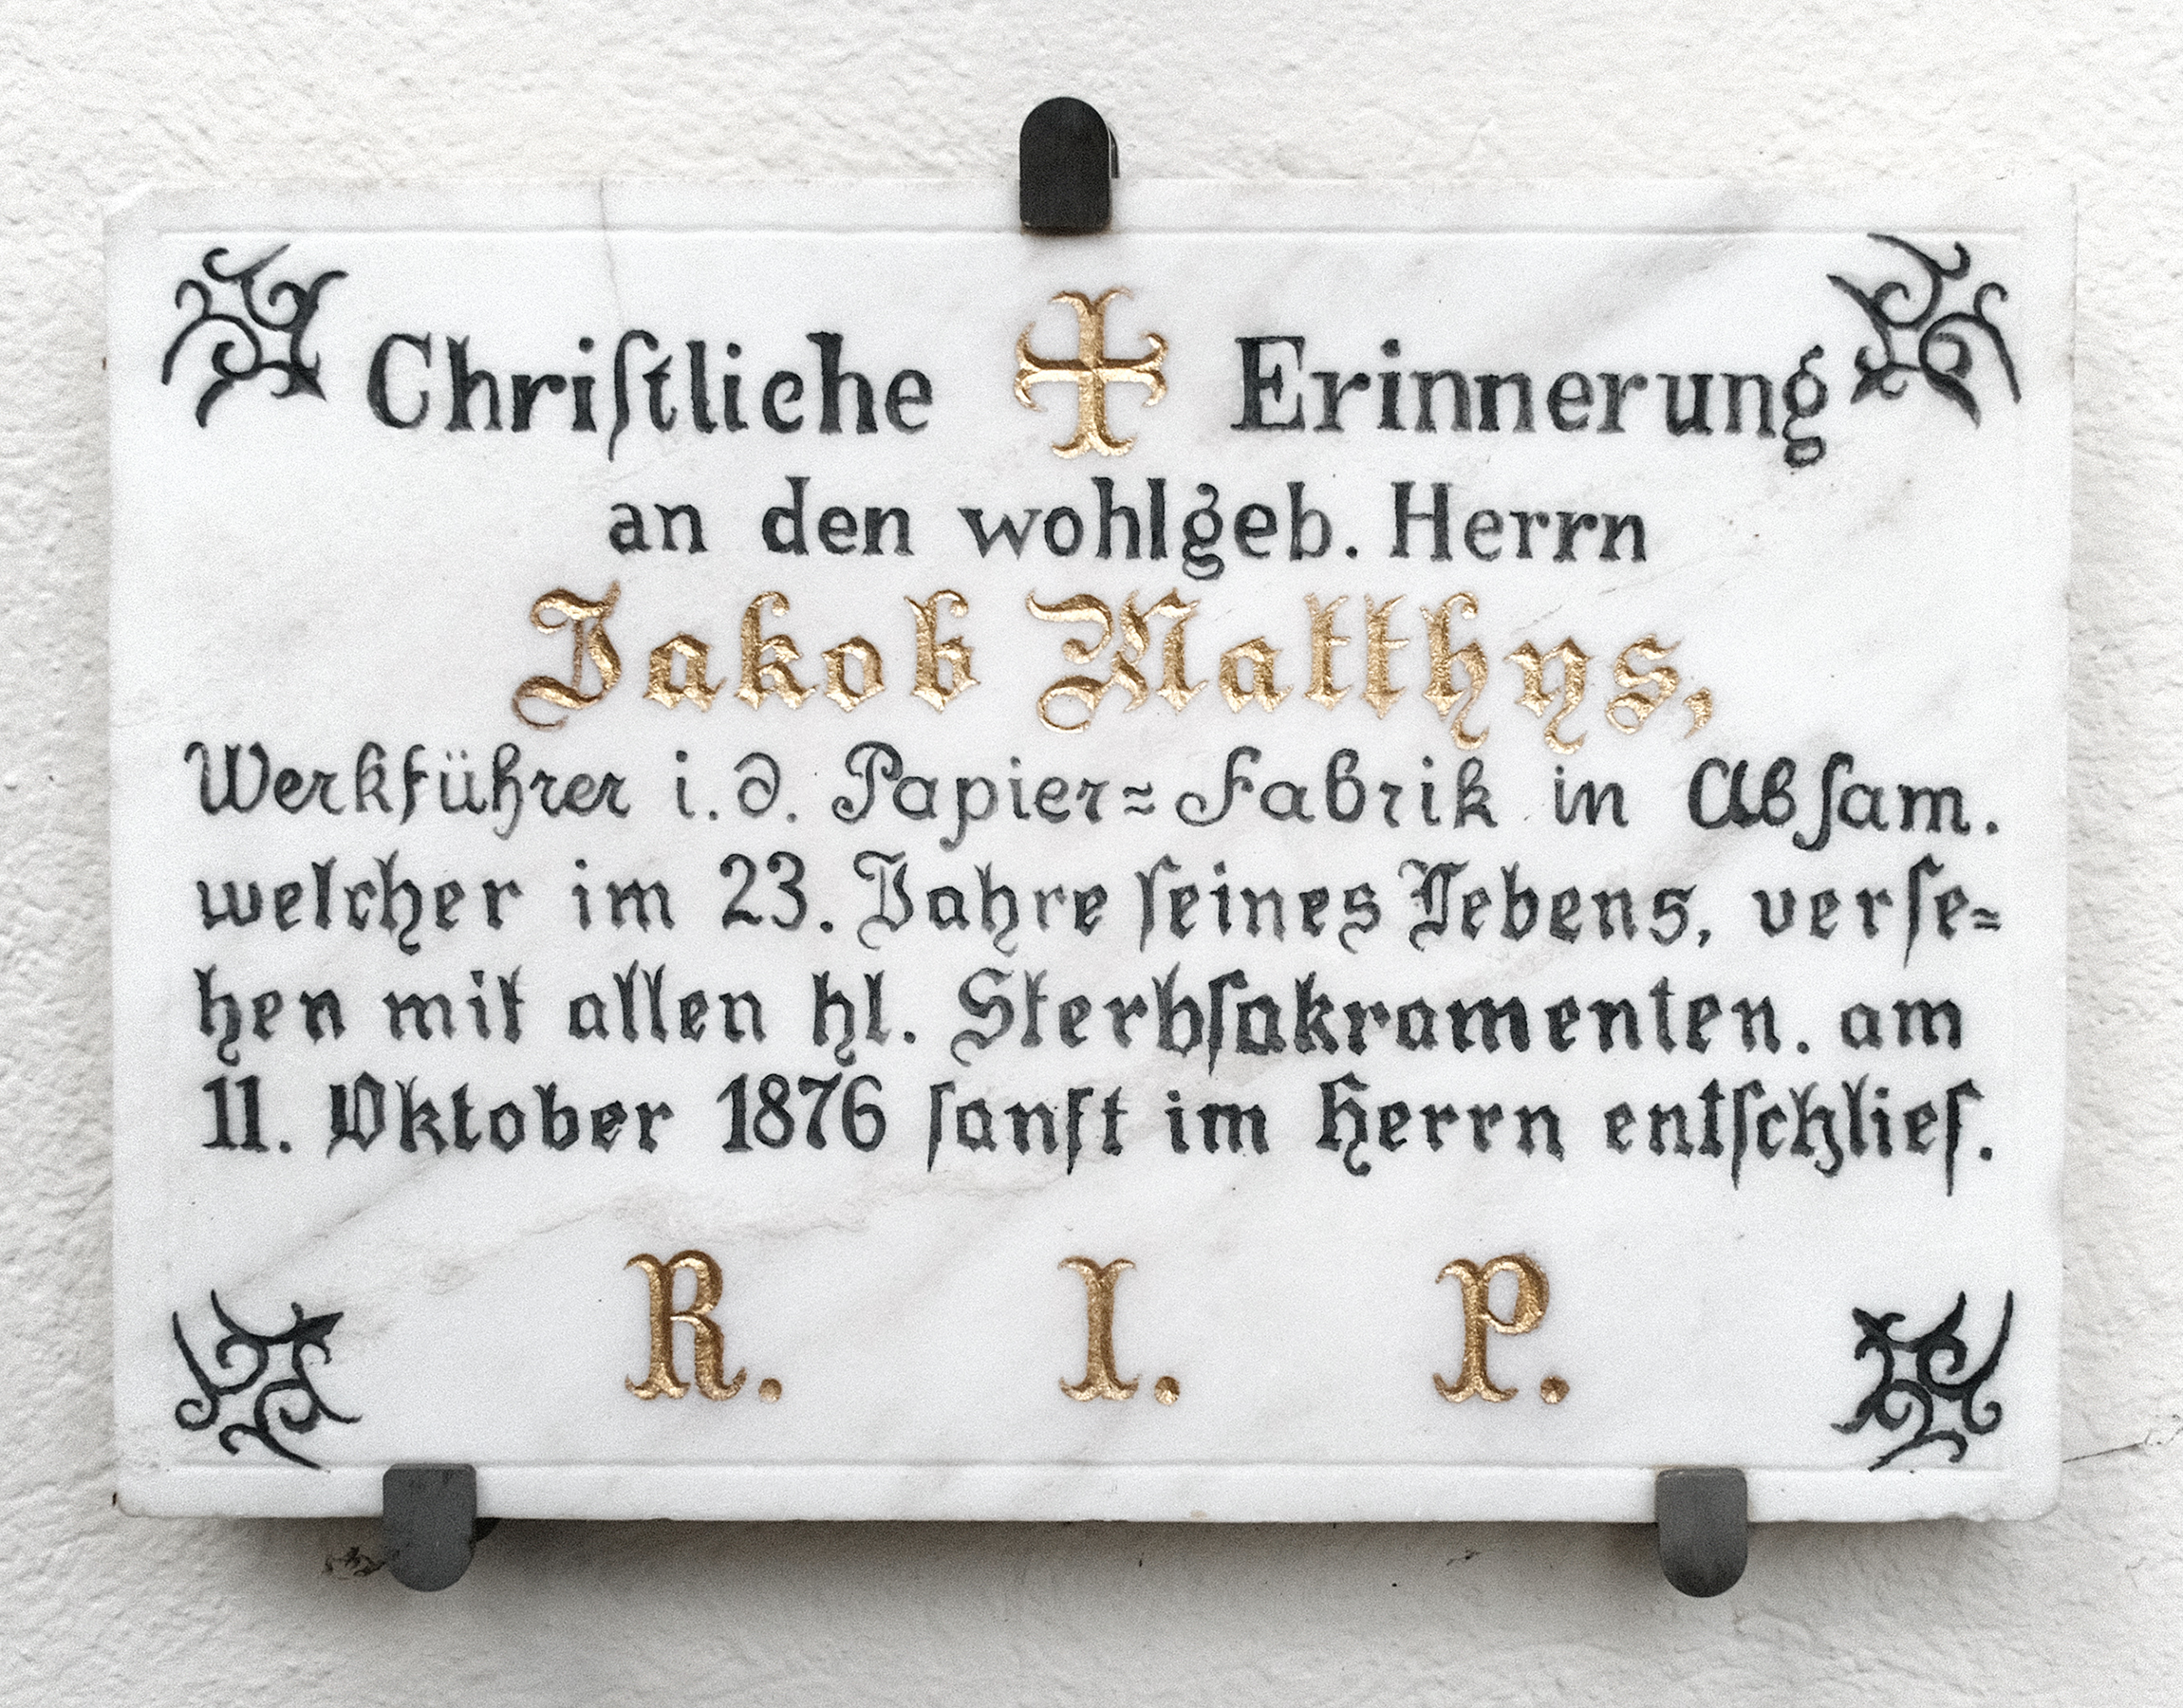 Chriſtliche Erinnerung
an den wohlgeb. Herrn
Jakob Matthys,
Werkführer i. d. Papier⸗Fabrik in Abſam.
welcher im 23. Jahre ſeines Lebens, verſe⸗
hen mit allen hl. Sterbſakramenten. am
11. Oktober 1876 ſanft im Herrn entſchlief.
R. I. P.